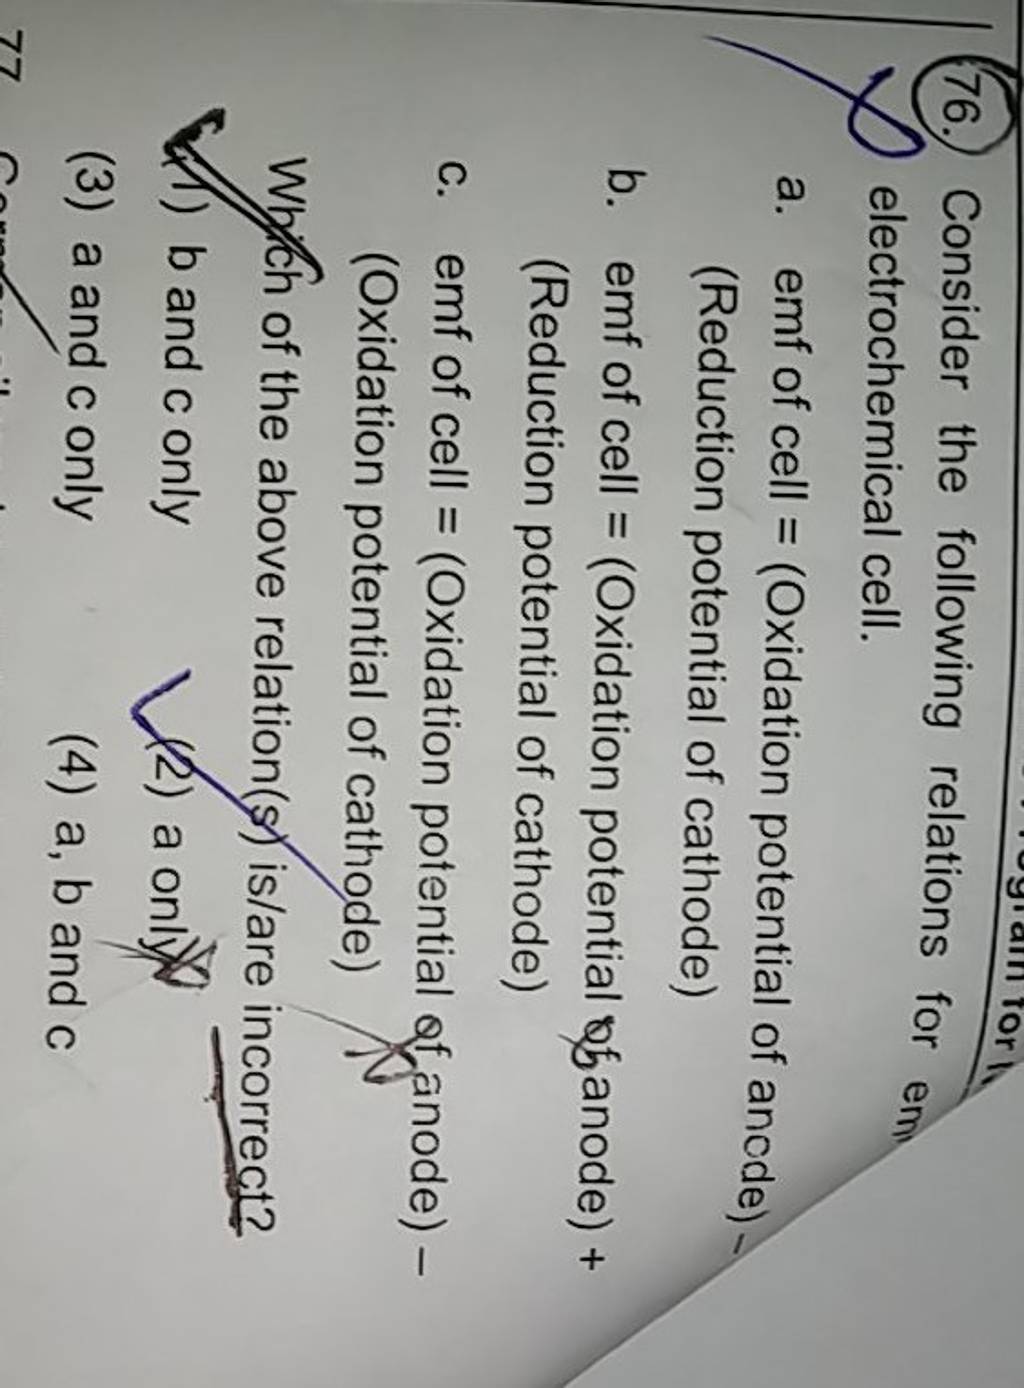 76. Consider the following relations for em
electrochemical cell.
a. emf of cell = (Oxidation potential of anode) –
(Reduction potential of cathode)
b. emf of cell = (Oxidation potential of anode) +
(Reduction potential of cathode)
c. emf of cell = (Oxidation potential of anode) –
(Oxidation potential of cathode)
Which of the above relation(s) is/are incorrect?
(1) b and c only (2) a only
(3) a and c only (4) a, b and c
77